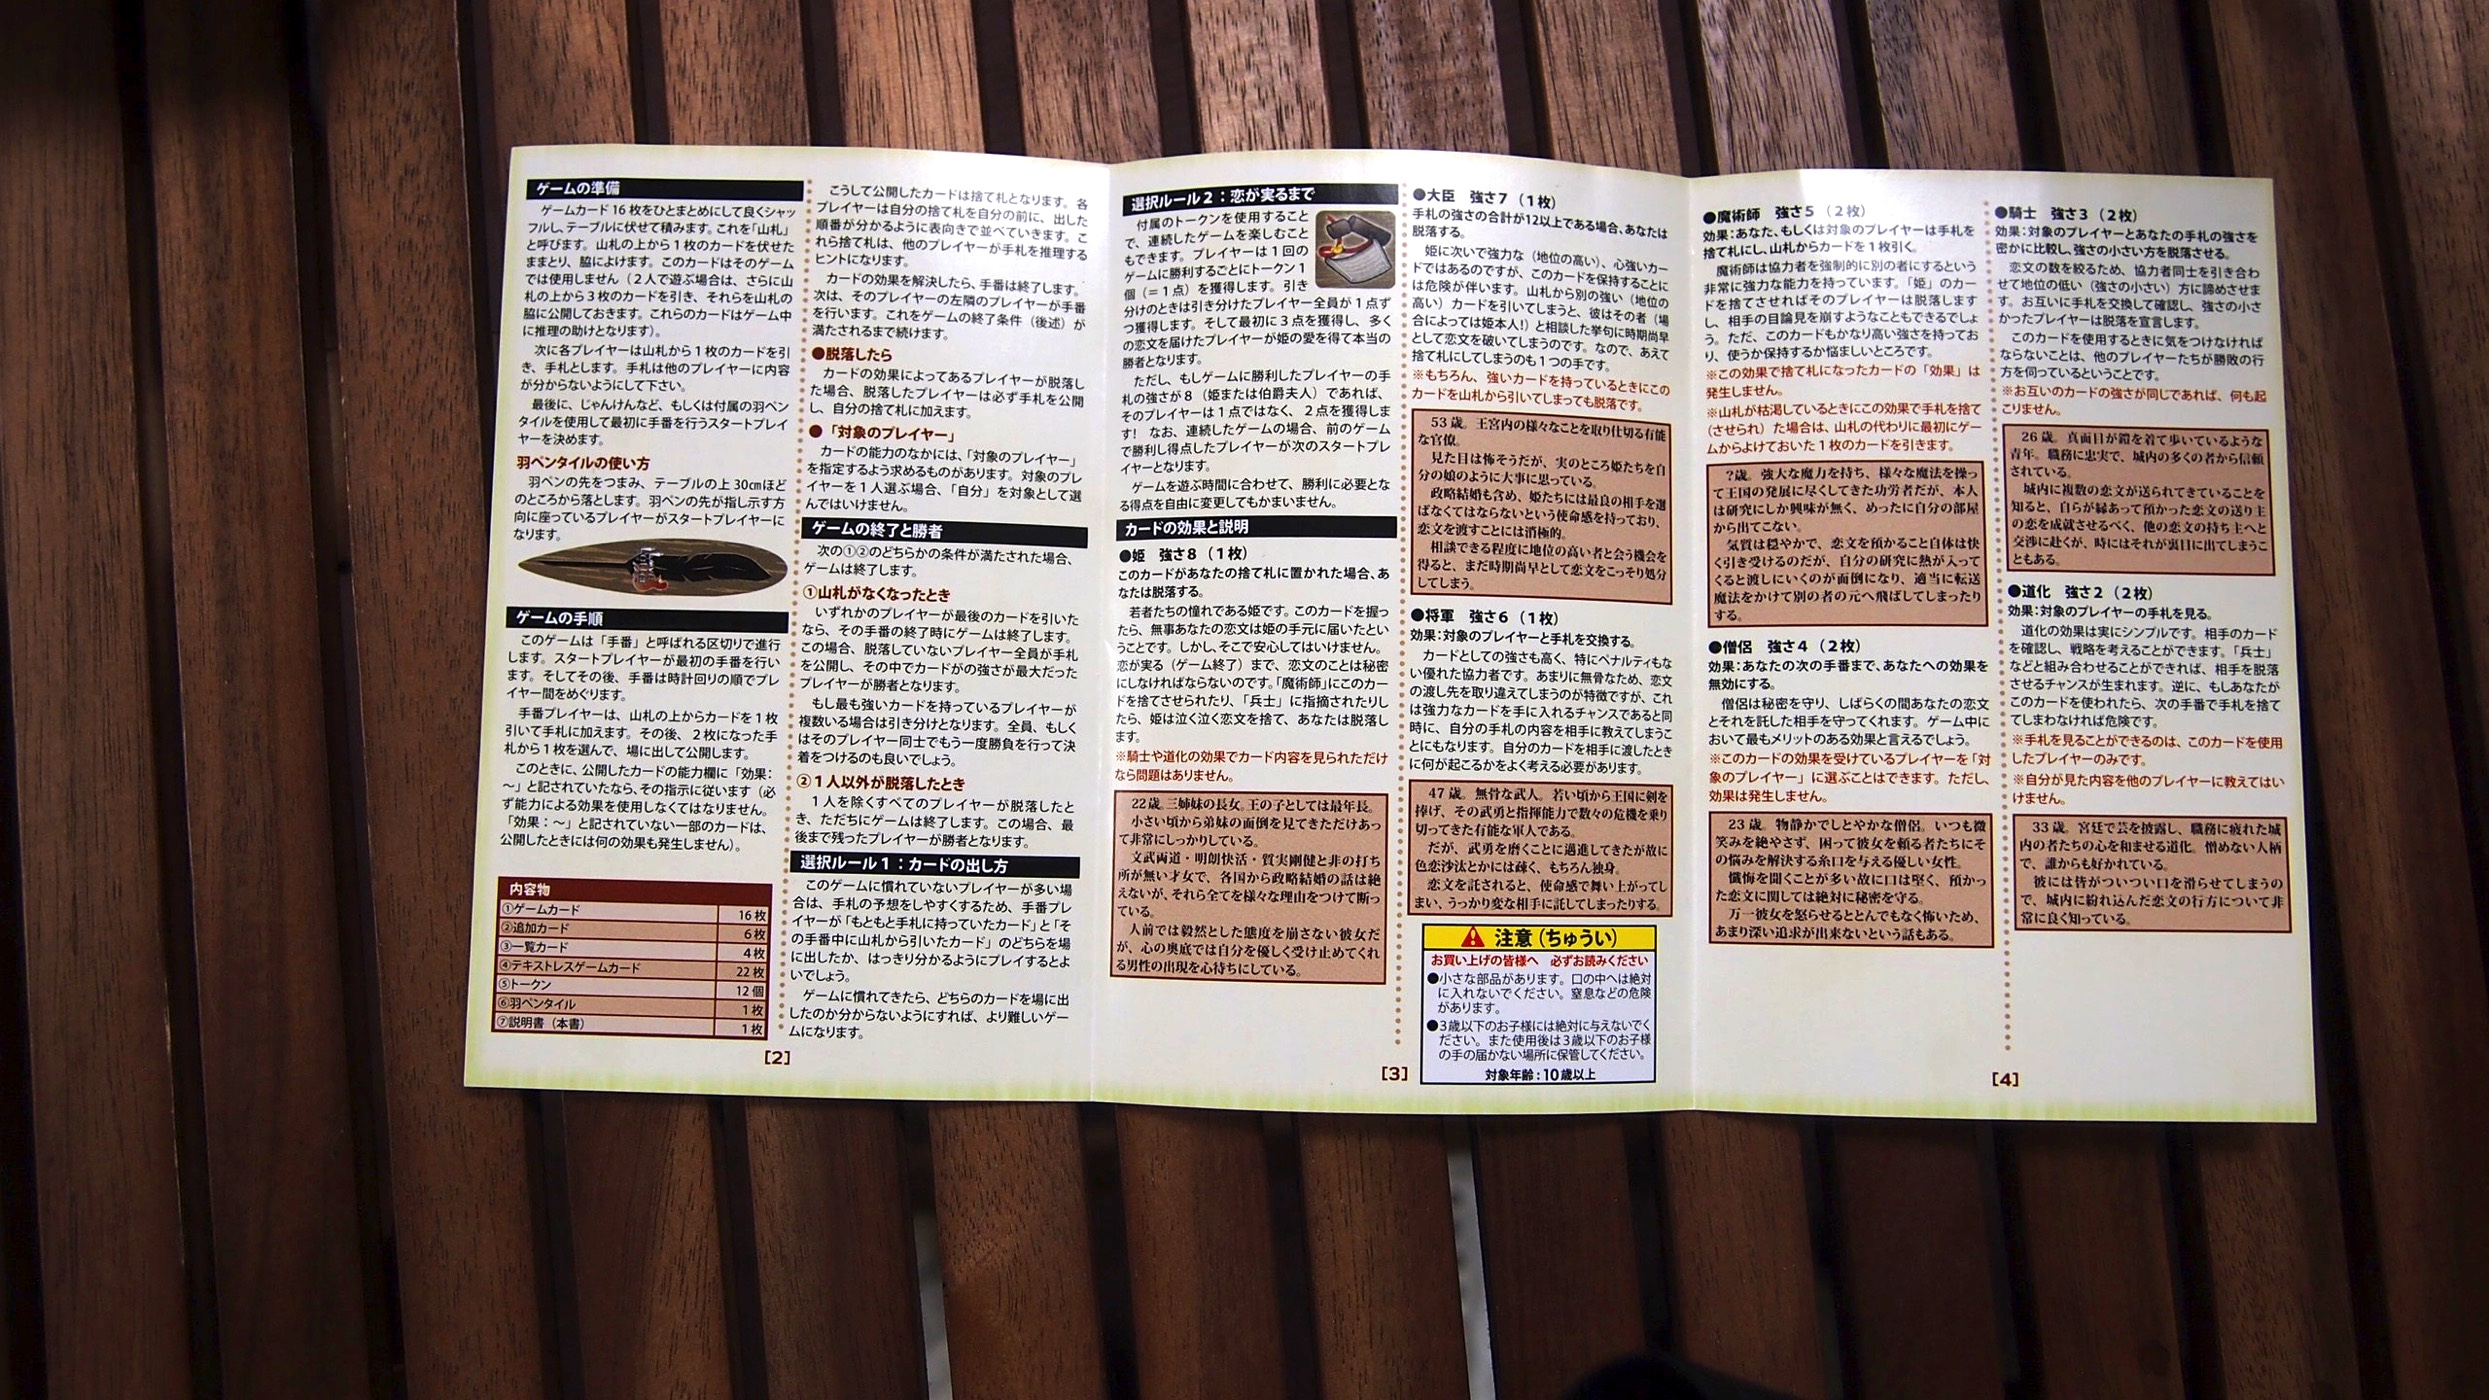 ゲームの準備
ゲームカード16枚をひとまとめにして良くシャッ
フルし、テーブルに伏せて積みます。これを「山札」
と呼びます。山札の上から1枚のカードを伏せた
ままとり、脇によけます。このカードはそのゲーム
では使用しません(2人で遊ぶ場合は、さらに山
札の上から3枚のカードを引き、それらを山札の
脇に公開しておきます。これらのカードはゲーム中
に推理の助けとなります)。
次に各プレイヤーは山札から1枚のカードを引
き、手札とします。手札は他のプレイヤーに内容
が分からないようにして下さい。
最後に、じゃんけんなど、もしくは付属の羽ペン
タイルを使用して最初に手番を行うスタートプレイ
ヤーを決めます。
羽ペンタイルの使い方
羽ペンの先をつまみ、テーブルの上30cmほど
のところから落とします。羽ペンの先が指し示す方
向に座っているプレイヤーがスタートプレイヤーに
なります。
ゲームの手順
このゲームは「手番」と呼ばれる区切りで進行
します。スタートプレイヤーが最初の手番を行い
ます。そしてその後、手番は時計回りの順でプレ
イヤー間をめぐります。
手番プレイヤーは、山札の上からカードを1枚
引いて手札に加えます。その後、2枚になった手
札から1枚を選んで、場に出して公開します。
このときに、公開したカードの能力欄に「効果:
~」と記されていたなら、その指示に従います(必
ず能力による効果を使用しなくてはなりません。
「効果:~」と記されていない一部のカードは、
公開したときには何の効果も発生しません)。
内容物
①ゲームカード 16枚
②追加カード 6枚
③一覧カード 4枚
④テキストレスゲームカード 22枚
⑤トークン 12個
⑥羽ペンタイル 1枚
⑦説明書(本書) 1枚
こうして公開したカードは捨て札となります。各
プレイヤーは自分の捨て札を自分の前に、出した
順番が分かるように表向きで並べていきます。こ
れら捨て札は、他のプレイヤーが手札を推理する
ヒントになります。
カードの効果を解決したら、手番は終了します。
次は、そのプレイヤーの左隣のプレイヤーが手番
を行います。これをゲームの終了条件(後述)が
満たされるまで続けます。
●脱落したら
カードの効果によってあるプレイヤーが脱落し
た場合、脱落したプレイヤーは必ず手札を公開
し、自分の捨て札に加えます。
●「対象のプレイヤー」
カードの能力のなかには、「対象のプレイヤー」
を指定するよう求めるものがあります。対象のプレ
イヤーを1人選ぶ場合、「自分」を対象として選
んではいけません。
ゲームの終了と勝者
次の①②のどちらかの条件が満たされた場合、
ゲームは終了します。
①山札がなくなったとき
いずれかのプレイヤーが最後のカードを引いた
なら、その手番の終了時にゲームは終了します。
この場合、脱落していないプレイヤー全員が手札
を公開し、その中でカードがの強さが最大だった
プレイヤーが勝者となります。
もし最も強いカードを持っているプレイヤーが
複数いる場合は引き分けとなります。全員、もしく
はそのプレイヤー同士でもう一度勝負を行って決
着をつけるのも良いでしょう。
②1人以外が脱落したとき
1人を除くすべてのプレイヤーが脱落したと
き、ただちにゲームは終了します。この場合、最
後まで残ったプレイヤーが勝者となります。
選択ルール1:カードの出し方
このゲームに慣れていないプレイヤーが多い場
合は、手札の予想をしやすくするため、手番プレ
イヤーが「もともと手札に持っていたカード」と「そ
の手番中に山札から引いたカード」のどちらを場
に出したか、はっきり分かるようにプレイするとよ
いでしょう。
ゲームに慣れてきたら、どちらのカードを場に出
したのか分からないようにすれば、より難しいゲー
ムになります。
[2]
選択ルール2:恋が実るまで
付属のトークンを使用すること
で、連続したゲームを楽しむこと
もできます。プレイヤーは1回の
ゲームに勝利するごとにトークン1
個(=1点)を獲得します。引き
分けのときは引き分けたプレイヤー全員が1点ず
つ獲得します。そして最初に3点を獲得し、多く
の恋文を届けたプレイヤーが姫の愛を得て本当の
勝者となります。
ただし、もしゲームに勝利したプレイヤーの手
札の強さが8(姫または伯爵夫人)であれば、
そのプレイヤーは1点ではなく、2点を獲得しま
す! なお、連続したゲームの場合、前のゲーム
で勝利し得点したプレイヤーが次のスタートプレ
イヤーとなります。
ゲームを遊ぶ時間に合わせて、勝利に必要とな
る得点を自由に変更してもかまいません。
カードの効果と説明
●姫 強さ8(1枚)
このカードがあなたの捨て札に置かれた場合、あ
なたは脱落する。
若者たちの憧れである姫です。このカードを握っ
たら、無事あなたの恋文は姫の手元に届いたとい
うことです。しかし、そこで安心してはいけません。
恋が実る(ゲーム終了)まで、恋文のことは秘密
にしなければならないのです。「魔術師」にこのカー
ドを捨てさせられたり、「兵士」に指摘されたりし
たら、姫は泣く泣く恋文を捨て、あなたは脱落し
ます。
※騎士や道化の効果でカード内容を見られただけ
なら問題はありません。
22歳。三姉妹の長女。王の子としては最年長。
小さい頃から弟妹の面倒を見てきただけあっ
て非常にしっかりしている。
文武両道・明朗快活・質実剛健と非の打ち
所が無い才女で、各国から政略結婚の話は絶
えないが、それら全てを様々な理由をつけて断っ
ている。
人前では毅然とした態度を崩さない彼女だ
が、心の奥底では自分を優しく受け止めてくれ
る男性の出現を心待ちにしている。
●大臣 強さ7(1枚)
手札の強さの合計が12以上である場合、あなたは
脱落する。
姫に次いで強力な(地位の高い)、心強いカー
ドではあるのですが、このカードを保持することに
は危険が伴います。山札から別の強い(地位の
高い)カードを引いてしまうと、彼はその者(場
合によっては姫本人!)と相談した挙句に時期尚早
として恋文を破いてしまうのです。なので、あえて
捨て札にしてしまうのも1つの手です。
※もちろん、強いカードを持っているときにこの
カードを山札から引いてしまっても脱落です。
53歳。王宮内の様々なことを取り仕切る有能
な官僚。
見た目は怖そうだが、実のところ姫たちを自
分の娘のように大事に思っている。
政略結婚も含め、姫たちには最良の相手を選
ばなくてはならないという使命感を持っており、
恋文を渡すことには消極的。
相談できる程度に地位の高い者と会う機会を
得ると、まだ時期尚早として恋文をこっそり処分
してしまう。
●将軍 強さ6(1枚)
効果:対象のプレイヤーと手札を交換する。
カードとしての強さも高く、特にペナルティもな
い優れた協力者です。あまりに無骨なため、恋文
の渡し先を取り違えてしまうのが特徴ですが、これ
は強力なカードを手に入れるチャンスであると同
時に、自分の手札の内容を相手に教えてしまうこ
とにもなります。自分のカードを相手に渡したとき
に何が起こるかをよく考える必要があります。
47歳。無骨な武人。若い頃から王国に剣を
捧げ、その武勇と指揮能力で数々の危機を乗り
切ってきた有能な軍人である。
だが、武勇を磨くことに邁進してきたが故に
色恋沙汰とかには疎く、もちろん独身。
恋文を託されると、使命感で舞い上がってし
まい、うっかり変な相手に託してしまったりする。
注意(ちゅうい)
お買い上げの皆様へ 必ずお読みください
●小さな部品があります。口の中へは絶対
に入れないでください。窒息などの危険
があります。
●3歳以下のお子様には絶対に与えないでく
ださい。また使用後は3歳以下のお子様
の手の届かない場所に保管してください。
対象年齢:10歳以上
[3]
●魔術師 強さ5(2枚)
効果:あなた、もしくは対象のプレイヤーは手札を
捨て札にし、山札からカードを1枚引く。
魔術師は協力者を強制的に別の者にするという
非常に強力な能力を持っています。「姫」のカー
ドを捨てさせればそのプレイヤーは脱落します
し、相手の目論見を崩すようなこともできるでしょ
う。ただ、このカードもかなり高い強さを持ってお
り、使うか保持するか悩ましいところです。
※この効果で捨て札になったカードの「効果」は
発生しません。
※山札が枯渇しているときにこの効果で手札を捨て
(させられ)た場合は、山札の代わりに最初にゲー
ムからよけておいた1枚のカードを引きます。
?歳。強大な魔力を持ち、様々な魔法を操っ
て王国の発展に尽くしてきた功労者だが、本人
は研究にしか興味が無く、めったに自分の部屋
から出てこない。
気質は穏やかで、恋文を預かること自体は快
く引き受けるのだが、自分の研究に熱が入って
くると渡しにいくのが面倒になり、適当に転送
魔法をかけて別の者の元へ飛ばしてしまったり
する。
●僧侶 強さ4(2枚)
効果:あなたの次の手番まで、あなたへの効果を
無効にする。
僧侶は秘密を守り、しばらくの間あなたの恋文
とそれを託した相手を守ってくれます。ゲーム中に
おいて最もメリットのある効果と言えるでしょう。
※このカードの効果を受けているプレイヤーを「対
象のプレイヤー」に選ぶことはできます。ただし、
効果は発生しません。
23歳。物静かでしとやかな僧侶。いつも微
笑みを絶やさず、困って彼女を頼る者たちにそ
の悩みを解決する糸口を与える優しい女性。
懺悔を聞くことが多い故に口は堅く、預かっ
た恋文に関しては絶対に秘密を守る。
万一彼女を怒らせるととんでもなく怖いため、
あまり深い追求が出来ないという話もある。
●騎士 強さ3(2枚)
効果:対象のプレイヤーとあなたの手札の強さを
密かに比較し、強さの小さい方を脱落させる。
恋文の数を絞るため、協力者同士を引き合わ
せて地位の低い(強さの小さい)方に諦めさせま
す。お互いに手札を交換して確認し、強さの小さ
かったプレイヤーは脱落を宣言します。
このカードを使用するときに気をつけなければ
ならないことは、他のプレイヤーたちが勝敗の行
方を伺っているということです。
※お互いのカードの強さが同じであれば、何も起
こりません。
26歳。真面目が鎧を着て歩いているような
青年。職務に忠実で、城内の多くの者から信頼
されている。
城内に複数の恋文が送られてきていることを
知ると、自らが縁あって預かった恋文の送り主
の恋を成就させるべく、他の恋文の持ち主へと
交渉に赴くが、時にはそれが裏目に出てしまうこ
ともある。
●道化 強さ2(2枚)
効果:対象のプレイヤーの手札を見る。
道化の効果は実にシンプルです。相手のカード
を確認し、戦略を考えることができます。「兵士」
などと組み合わせることができれば、相手を脱落
させるチャンスが生まれます。逆に、もしあなたが
このカードを使われたら、次の手番で手札を捨て
てしまわなければ危険です。
※手札を見ることができるのは、このカードを使用
したプレイヤーのみです。
※自分が見た内容を他のプレイヤーに教えてはい
けません。
33歳。宮廷で芸を披露し、職務に疲れた城
内の者たちの心を和ませる道化。憎めない人柄
で、誰からも好かれている。
彼には皆がついつい口を滑らせてしまうの
で、城内に紛れ込んだ恋文の行方について非
常に良く知っている。
[4]